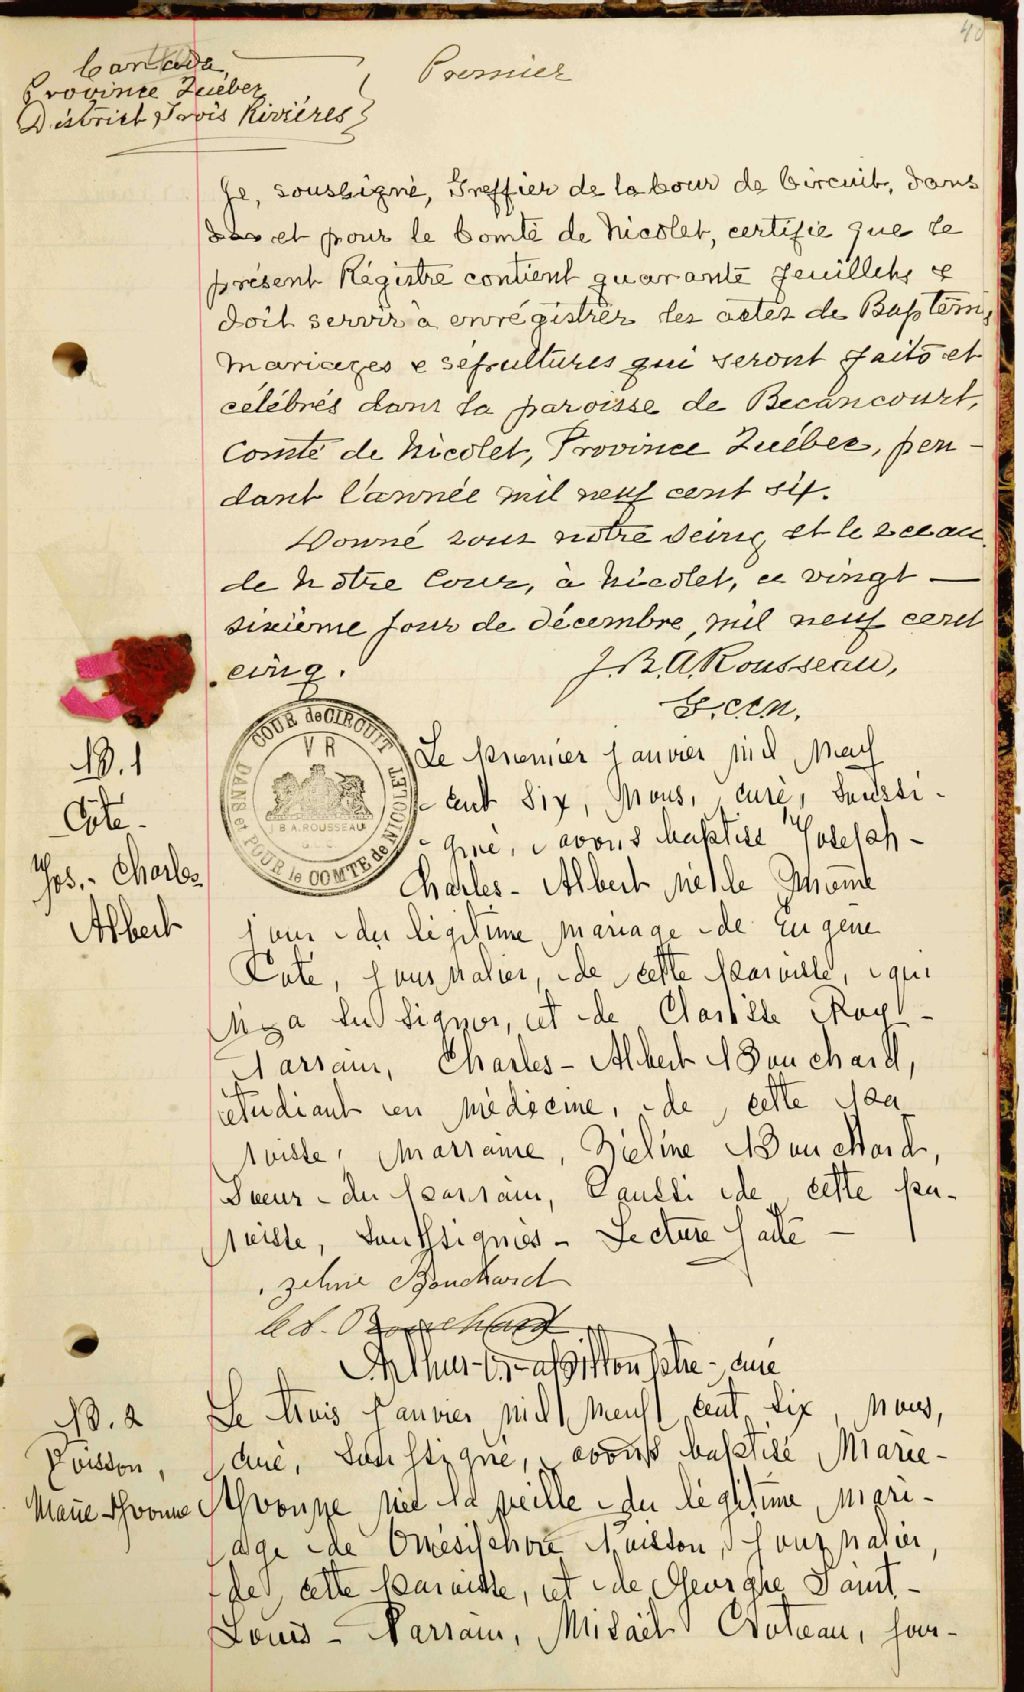 40
Canada
Province Québec
District Trois Rivières
Premier
Je, soussigné, Greffier de la Cour de Circuit, dans
et pour le Comté de Nicolet, certifie que le
présent Régistre contient quarante feuillets &
doit servir à enrégistrer les actes de Baptêmes
mariages & sépultures qui seront faits et
célébrés dans la paroisse de Becancourt,
Comté de Nicolet, Province Québec, pen-
dant l'année mil neuf cent six.
Donné sous notre seing et le sceau
de notre Cour, à Nicolet, ce vingt —
sixième jour de décembre, mil neuf cent
cinq.
J. B. A. Rousseau,
G.C.C.N.
COUR de CIRCUIT
DANS et POUR le COMTE de NICOLET
V R
J B A. ROUSSEAU
B. 1
Côté
Jos. - Charles
Albert
Le premier janvier mil neuf
cent six, Nous, curé, soussi-
gné, avons baptisé Joseph-
Charles-Albert né le même
jour du légitime mariage de Eugène
Coté, journalier, de cette paroisse, qui
n'a su signer, et de Clarisse Roy -
Parrain, Charles-Albert Bouchard,
étudiant en médecine, de cette pa
roisse, marraine, Zéline Bouchard,
soeur du parrain, aussi de cette pa-
roisse, soussignés - Lecture faite —
Zeline Bouchard
Bouchard
Arthur ptre-curé
B. 2
Poisson,
Marie-Yvonne
Le trois janvier mil neuf cent six, nous,
curé, soussigné, avons baptisé Marie-
Yvonne née la veille du légitime mari-
age de Onésiphore Poisson, journalier,
de cette paroisse, et de Georgie Saint-
Louis - Parrain, Misaël Croteau, jour-